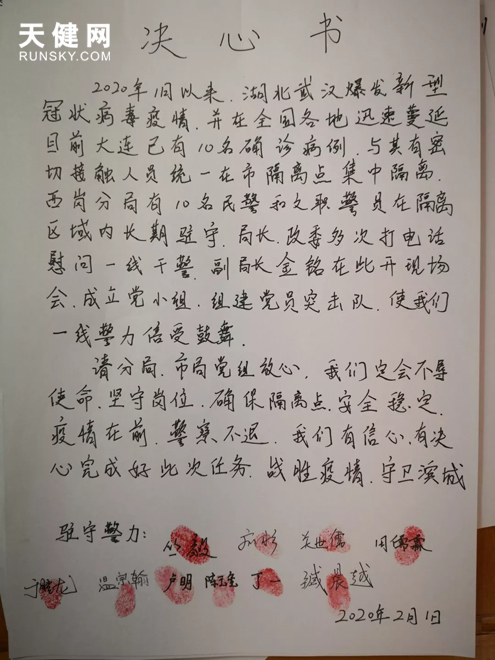 天健网
RUNSKY.COM
决心书
2020年1月以来，湖北武汉爆发新型
冠状病毒疫情，并在全国各地迅速蔓延
目前大连已有10名确诊病例，与其有密
切接触人员统一在市隔离点集中隔离，
西岗分局有10名民警和文职警员在隔离
区域内长期驻守，局长、政委多次打电话
慰问一线干警，副局长金铭在此开现场
会，成立党小组，组建党员突击队，使我们
一线警力倍受鼓舞，
请分局、市局党组放心，我们定会不辱
使命，坚守岗位，确保隔离点安全稳定，
疫情在前，警察不退，我们有信心，有决
心完成好此次任务，战胜疫情，守卫滨城
驻守警力：
卢明 丁一
2020年2月1日